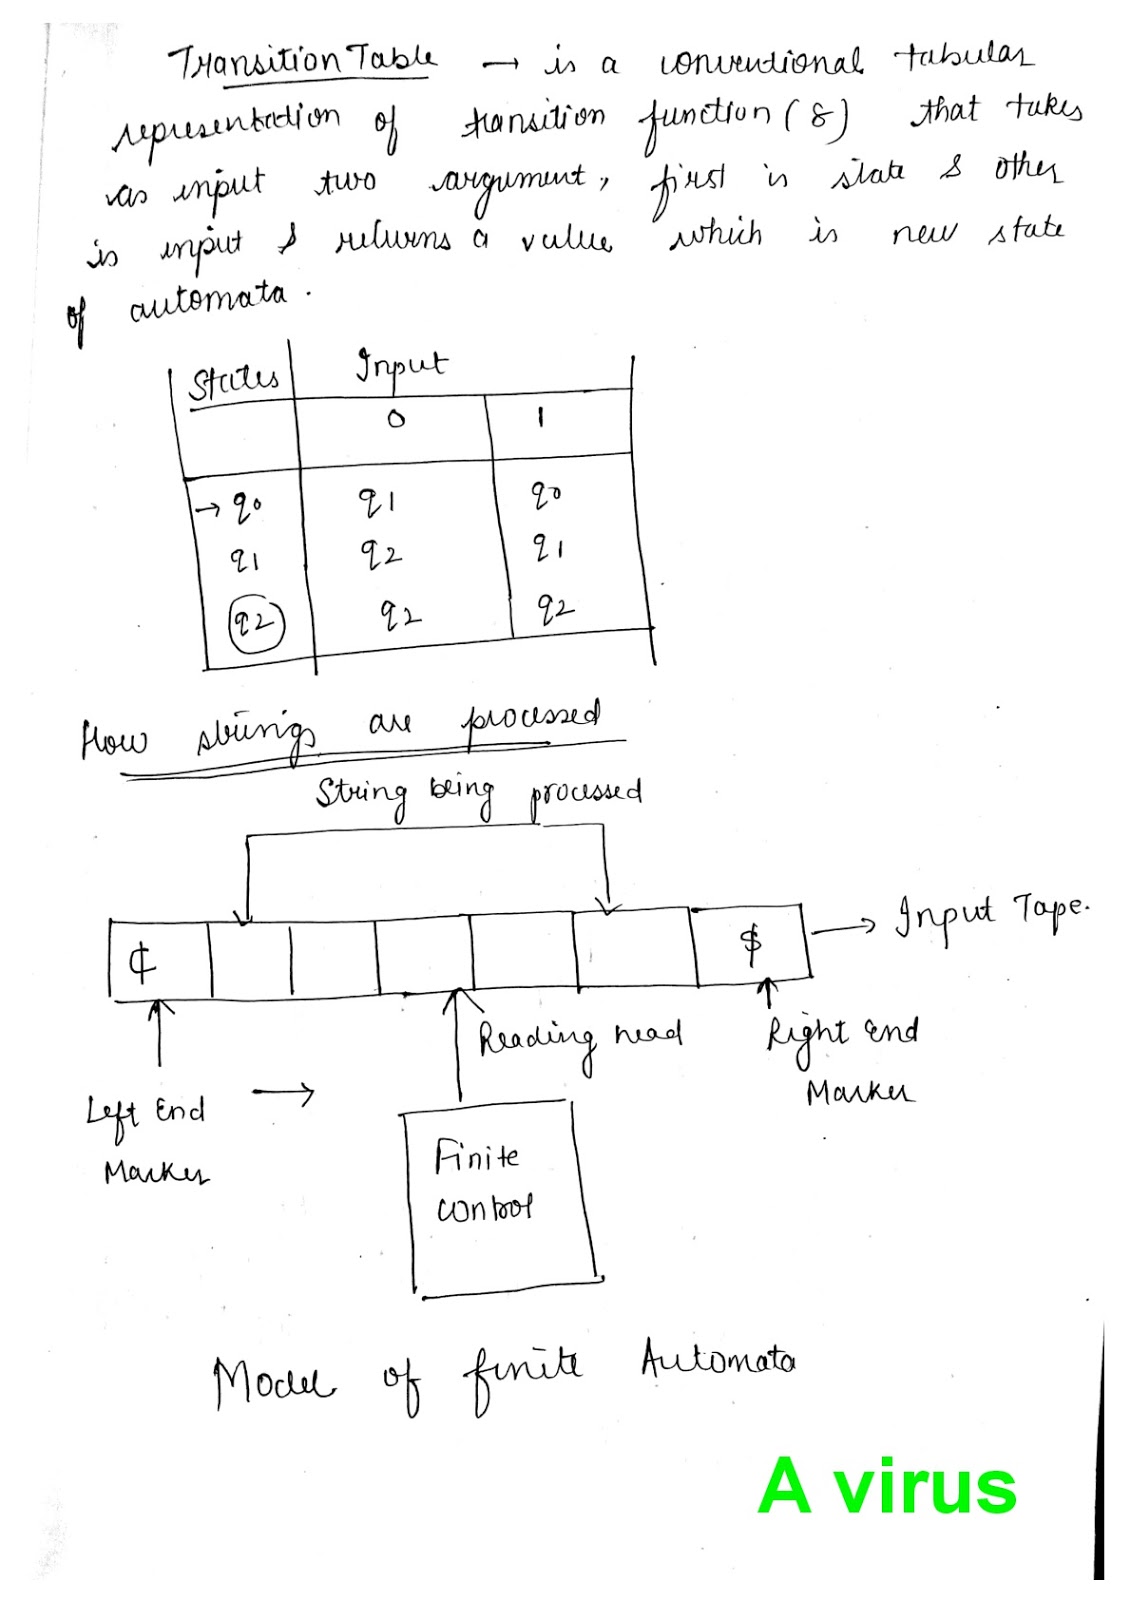 Transition Table → is a conventional tabular
representation of transition function (δ) that takes
as input two argument, first is state & other
is input & returns a value which is new state
of automata.
States Input
0 1
→ q0 q1 q0
q1 q2 q1
q2 q2 q2
How strings are processed
String being processed
¢ $ → Input Tape.
Reading head
Right End
Marker
Left End →
Marker
Finite
control
Model of finite Automata
A virus